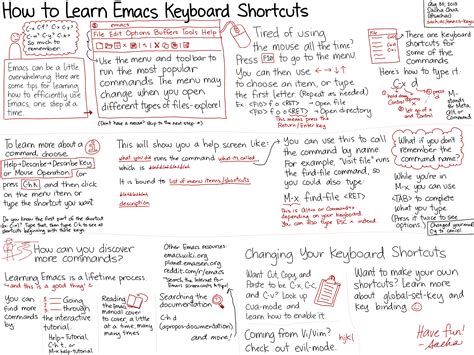 How to Learn Emacs Keyboard Shortcuts
Sacha Chua
(@sachac)
C-x C-f? C-x o?
C-w? C-y? C-s?
So much to
remember...
Emacs can be a little
overwhelming. Here are
some tips for learning
how to efficiently use
Emacs, one step at a
time.
emacs
File Edit Options Buffers Tools Help
Use the menu and toolbar to
run the most popular
commands. The menu may
change when you open
different types of files-explore!
(Don't have a menu? Skip to the next step)
Tired of using
the mouse all the time?
Press <F10> to open the menu.
You can then use
to choose an item, or type
the first letter (Repeat as needed)
Ex: <F10> f o <RET> → Open file
<F10> f <RET> → Open directory
This means press the
Return/Enter key
There are keyboard
shortcuts for
some of the
commands.
Here's how to type it:
C-x d
M-
stands
for Meta
or Alt
To learn more about a
command, choose:
Help→Describe→Describe Key
or Mouse Operation
(or press C-h k) and then click
on the menu item or
type the shortcut you want
Do you know the first part of the shortcut
(ex: C-x)? Type that, then type C-h to see all
shortcuts beginning with those keys.
This will show you a help screen like:
what you did runs the command what it called,
which is
It is bound to list of menu items/shortcuts
description
You can use this to call
commands by name.
For example, "Visit file" runs
the find-file command, so
you could also type:
M-x find-file <RET>
This is Alt or Command
depending on your keyboard
You can also type ESC x instead.
What if you don't
remember the
command name?
While you're in
M-x you can use
<TAB> to complete
what you type.
(Press it twice to see
options.)
Changed your mind?
C-g to cancel
How can you discover
more commands?
Learning Emacs is a lifetime process
← and this is a good thing! c:
You can
find more
commands
by
Going
through
the interactive
tutorial.
Help→Tutorial
C-h t, or
M-x help→tutorial
Reading the
Emacs manual
cover to
cover, a little
at a time, many
many times
Other Emacs resources:
emacswiki.org
planet.emacsen.org
reddit.com/r/emacs
Searching the
documentation
C-h d
(apropos-documentation)
and more!
Changing Your Keyboard Shortcuts
Want Cut, Copy, and
Paste to be C-x, C-c,
and C-v? Look up
cua-mode and learn
how to enable it.
Coming from Vi/Vim?
Check out evil-mode.
hjkl
Want to make your own
shortcuts? Learn more
about global-set-key
and key binding
Have fun!
- Sacha